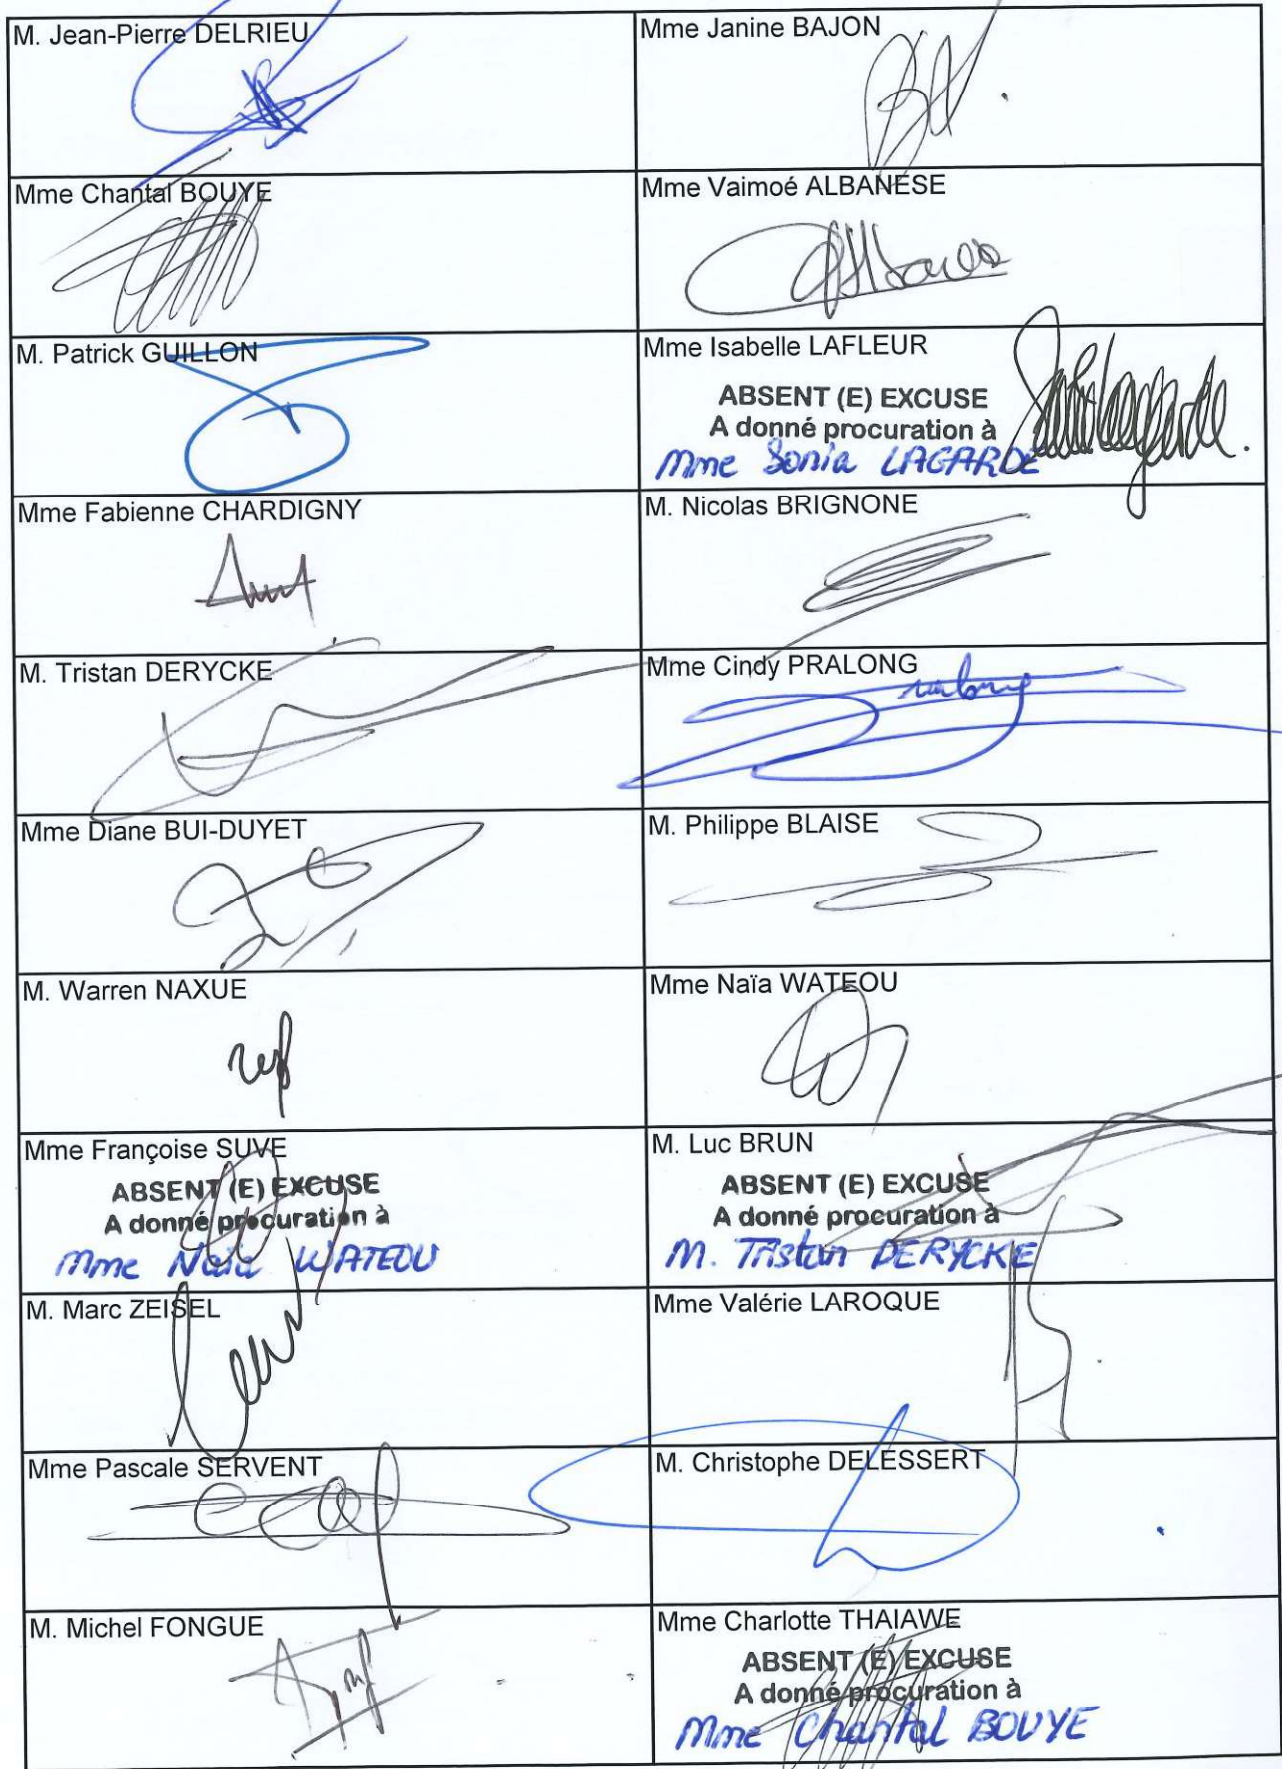 M. Jean-Pierre DELRIEU
Mme Janine BAJON
Mme Chantal BOUYE
Mme Vaimoé ALBANESE
M. Patrick GUILLON
Mme Isabelle LAFLEUR
ABSENT (E) EXCUSE
A donné procuration à
Mme Sonia LAGARDE
Mme Fabienne CHARDIGNY
M. Nicolas BRIGNONE
M. Tristan DERYCKE
Mme Cindy PRALONG
Mme Diane BUI-DUYET
M. Philippe BLAISE
M. Warren NAXUE
Mme Naïa WATEOU
Mme Françoise SUVE
ABSENT (E) EXCUSE
A donné procuration à
Mme Naia WATEOU
M. Luc BRUN
ABSENT (E) EXCUSE
A donné procuration à
M. Tristan DERYCKE
M. Marc ZEISEL
Mme Valérie LAROQUE
Mme Pascale SERVENT
M. Christophe DELESSERT
M. Michel FONGUE
Mme Charlotte THAIAWE
ABSENT (E) EXCUSE
A donné procuration à
Mme Chantal BOUYE